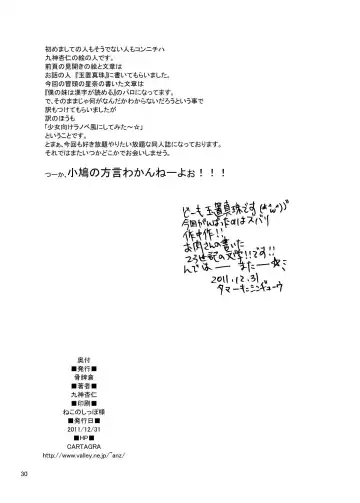 初めましての人もそうでない人もコンニチハ
九神杏仁の絵の人です。
前頁の見開きの絵と文章は
お話の人 『玉置真珠』に書いてもらいました。
今回の冒頭の星奈の書いた文章は
『僕の妹は漢字が読める』のパロになってます。
で、そのままじゃ何がなんだかわからないだろうという事で
訳もつけてもらいましたが
訳のほうも
「少女向けラノベ風にしてみた～☆」
ということです。
とまぁ、今回も好き放題やりたい放題な同人誌になっております。
それではまたいつかどこかでお会いしませう。
つーか、小鳩の方言わかんねーよぉ！！！
どーも玉置真珠です(*°w°)ﾉﾞ
今回がんばったのはズバリ
作中作!!
お肉さんの書いた
23世紀の文学!!です!!
んでは ── また──☆ミ
2011.12.31
タマーキ=シンギョーウ
奥付
■発行■
骨牌倉
■著者■
九神杏仁
■印刷■
ねこのしっぽ様
■発行日■
2011/12/31
■HP■
CARTAGRA
http://www.valley.ne.jp/~anz/
30